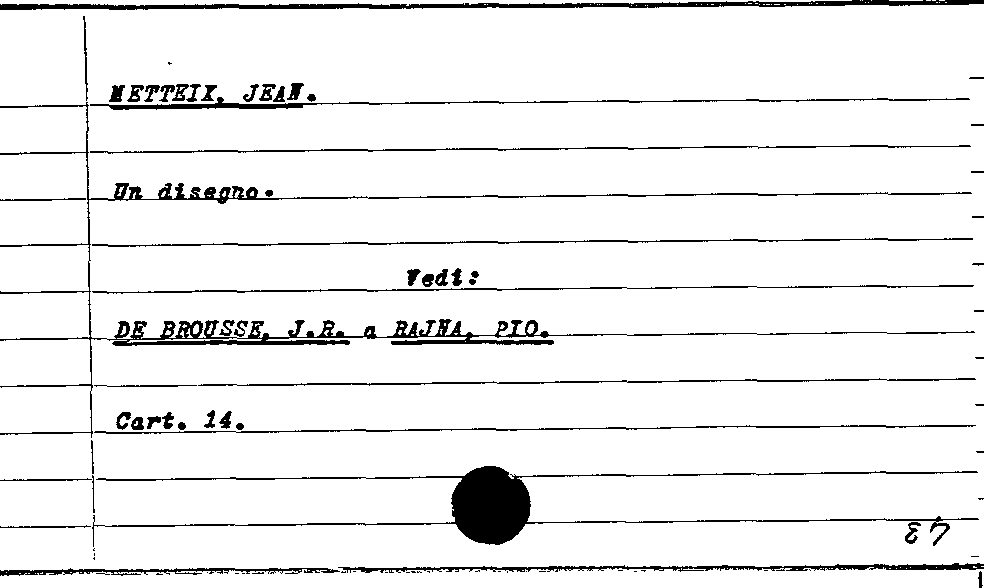 METTEIX, JEAN.
Un disegno.
Vedi:
DE BROUSSE, J.R. a RAJNA, PIO.
Cart. 14.